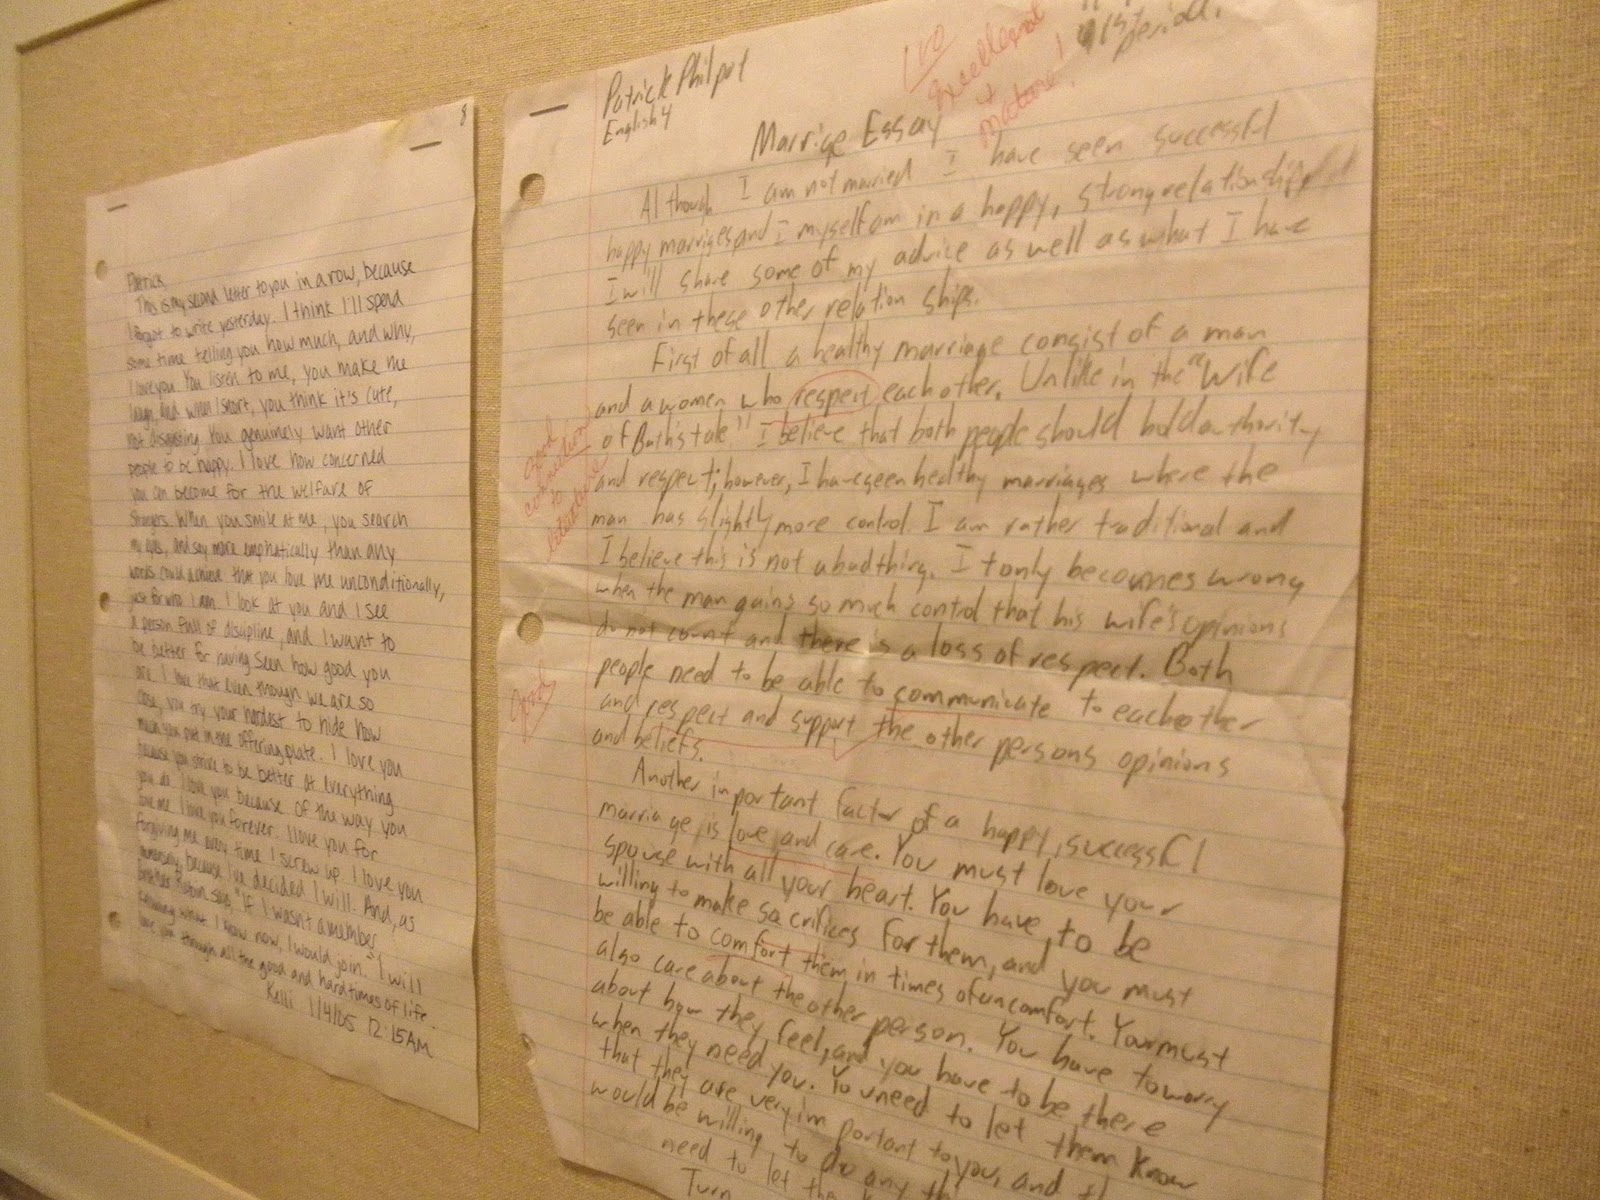 8
Patrick,
This is my second letter to you in a row, because
I forgot to write yesterday. I think I'll spend
some time telling you how much, and why,
I love you. You listen to me, you make me
laugh, and when I snort, you think it's cute,
not disgusting. You genuinely want other
people to be happy. I love how concerned
you can become for the welfare of
strangers. When you smile at me, you search
my eyes, and say more emphatically than any
words could achieve that you love me unconditionally,
just for who I am. I look at you and I see
a person full of discipline, and I want to
be better for having seen how good you
are. I love that even though we are so
close, you try your hardest to hide how
much you put in the offering plate. I love you
because you strive to be better at everything
you do. I love you because of the way you
love me. I love you forever. I love you for
forgiving me every time I screw up. I love you
because I've decided I will. And, as
brother says, "If I wasn't a member,
knowing what I know now, I would join." I will
love you through all the good and hard times of life.
Kelli 1/4/05 12:15AM
Patrick Philpot
English 4
1st period
100
Excellent
+
mature!
Marrige Essay
Al though I am not married I have seen successful
happy marriges and I myself am in a happy, strong relationship
I will share some of my advice as well as what I have
seen in these other relation ships.
First of all a healthy marriage consist of a man
and a women who respect each other. Unlike in the "Wife
of Bath's tale" I believe that both people should hold authority
and respect; however, I have seen healthy marriages where the
man has slightly more control. I am rather traditional and
I believe this is not a bad thing. It only becomes wrong
when the man gains so much control that his wife's opinions
do not count and there is a loss of respect. Both
people need to be able to communicate to each other
and respect and support the other persons opinions
and beliefs.
good
connection
to
literature
Good
Another important factor of a happy, successful
marriage is love and care. You must love your
spouse with all your heart. You have to be
willing to make sacrifices for them, and you must
be able to comfort them in times of uncomfort. You must
also care about the other person. You have to worry
about how they feel, and you have to be there
when they need you. You need to let them know
that they are very im portant to you, and
would be willing to do any
need to let the
Turn